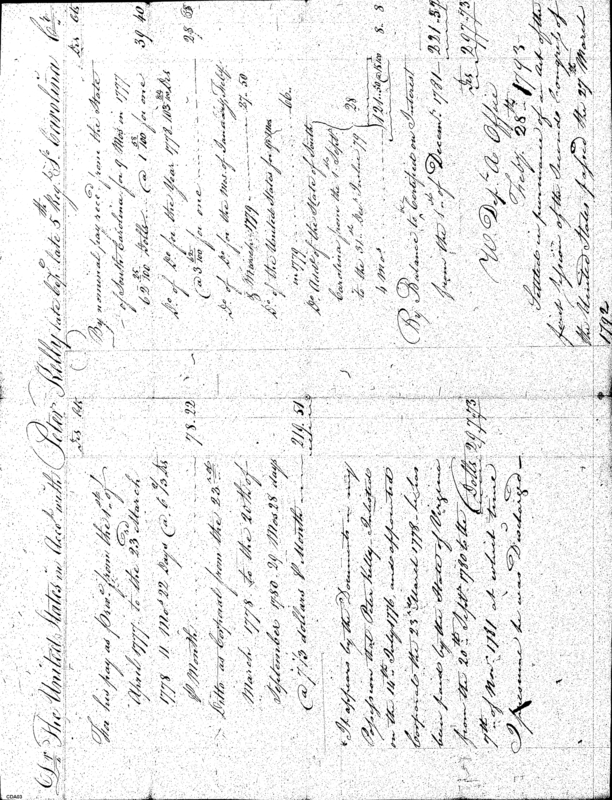 Dr The United States in Acct with Peter Kelly late Corpl late 5th Regt So Carolina Cr
Drs Cts
To his pay as Private from the 1st of
April 1777 to the 23d March
1778 11 Mos 22 Days @ 6 2/3 Drs
⅌ Month 78.22
Ditto as Corporal from the 23d
March 1778 to the 20th of
September 1780 29 Mos 28 days
@ 7 1/3 dollars ⅌ Month 219.51
It appears by the Documents in my
Possession that Peter Kelly Inlisted
on the 14th July 1776 and appointed
Corporal the 23d March 1778 he has
been paid by the State of Virginia
from the 20th Sept 1780 to the
7th of Novr 1781 at which time
I presume he was Discharged
Dolls 297.73
Drs Cts
By nominal pay reced from the State
of South Carolina for 9 Mos in 1777
62 Dolls @ 1 for one 39 40
Do of Do for the Year 1778 103 Drs
@ 3 for one 28
Do of Do for the Mos of January, Feby
& March 1779 27.50
Do of the United States for 9 Mos
in 1779 66.
Do Audr of the State of South
Carolina from the 1st Sept
to the 31st Decr Inclu 79 28
4 Mos 121.50 8.8
By Balance to Certificate on Interest
from the 1st of Decemr 1781 221.37
Drs 297.73
W Dep. A Office
Feby 28th 1793
Settled in pursuance of an Act of the
first Session of the Second Congress of
the United States passed the 27th March
1792
CDA03